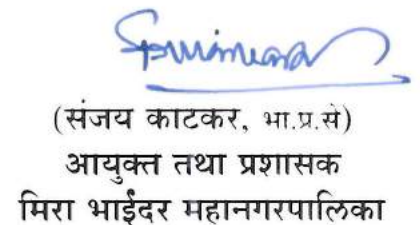 (संजय काटकर, भा.प्र.से)
आयुक्त तथा प्रशासक
मिरा भाईंदर महानगरपालिका